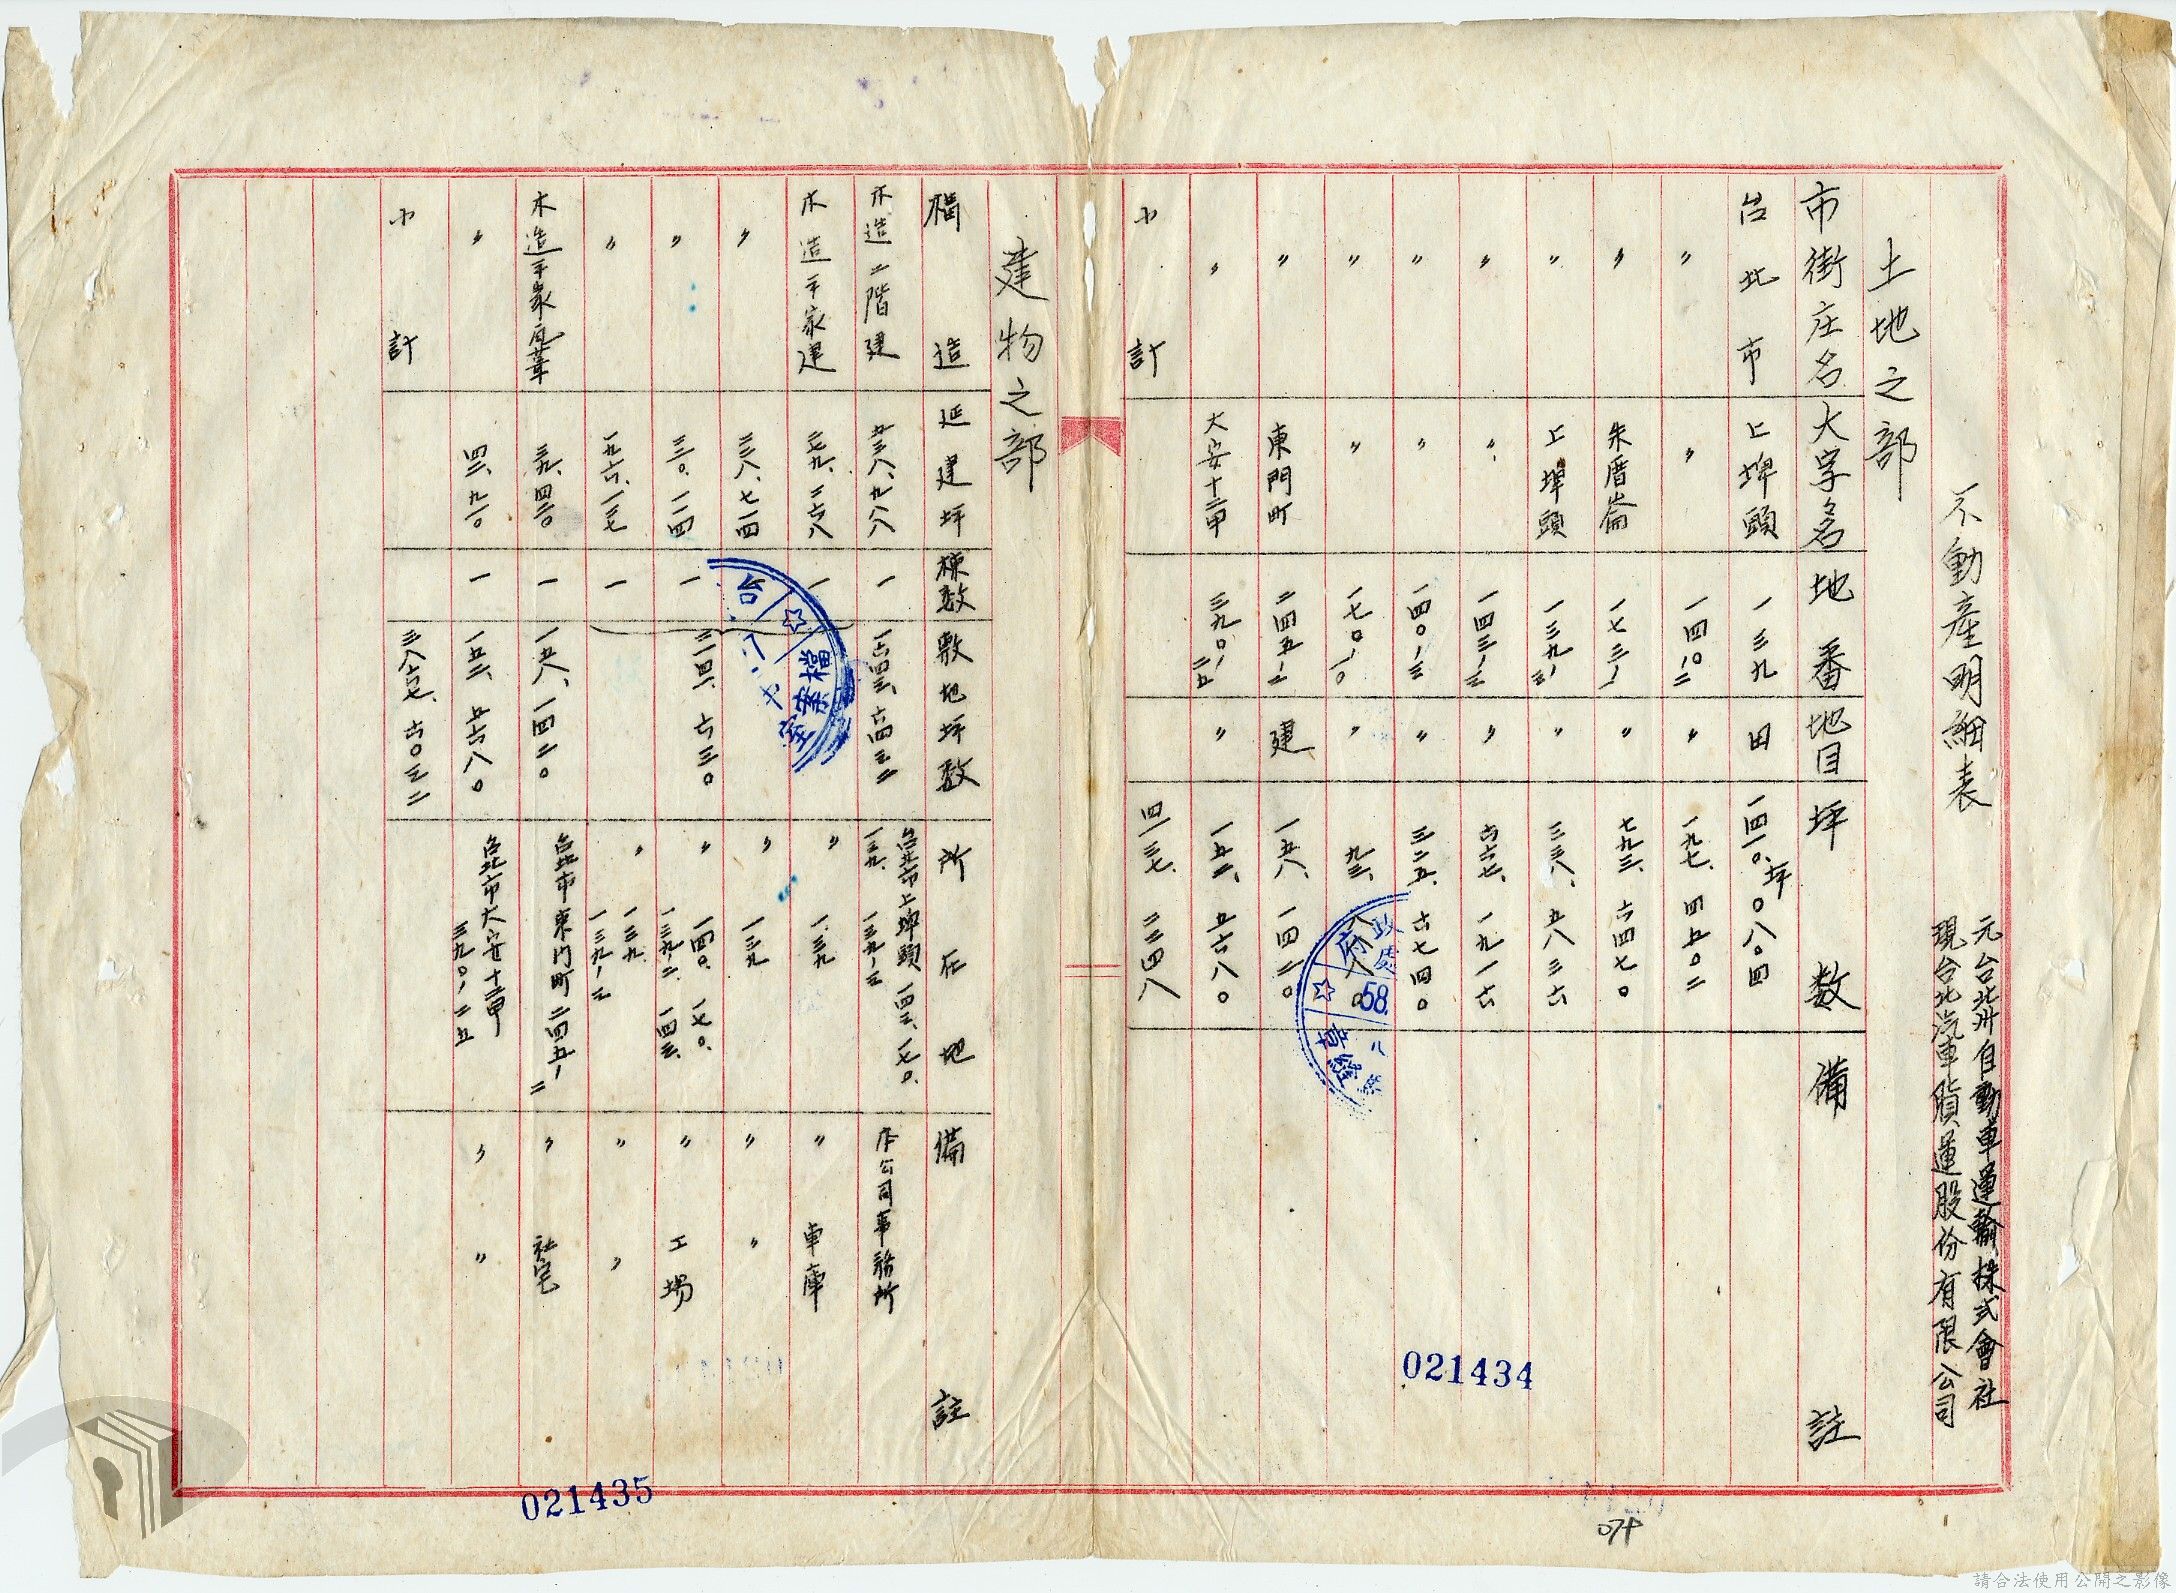 不動產明細表
元台北州自動車運輸株式會社
現台北汽車貨運股份有限公司
土地之部
市街庄名 大字名 地番 地目 坪數 備註
台北市 上埤頭 一三九 田 一四一〇坪〇八〇四
〃 〃 一四〇-二 〃 一九七、四五〇二
〃 朱厝崙 一七三-一 〃 七九三、六四七〇
〃 上埤頭 一三九-三 〃 三三八、五八三六
〃 〃 一四三-三 〃 六六七、一九一六
〃 〃 一四〇-三 〃 三二五、六七四〇
〃 〃 一七〇-一〇 〃 九三、八八〇
〃 東門町 二四五-二 建 一五八、一四二〇
〃 大安十二甲 三九〇-二五 〃 一五二、五六八〇
小計 四一三七、二三四八
建物之部
構造 延建坪 棟數 敷地坪數 所在地 備註
木造二階建 五三八、九八八 一 一六四三、六四三二 台北市上埤頭 一四三、一七〇、一三九、一三九-三 本公司事務所
木造平家建 二七九、二六八 一 〃 一三九 〃 車庫
〃 三三八、七一四 〃 一三九 〃 〃
〃 三三〇、一一四 一 三一四一、六三三〇 〃 一四〇、一七〇、一三九-二、一四三、 〃 工場
〃 一九六、一三七 一 〃 一三九、一三九-三 〃 〃
木造平家瓦葺 三九、四三〇 一 一五八、一四二〇 台北市東門町二四五-二 〃 社宅
〃 四二、九二〇 一 一五二、五六八〇 台北市大安十二甲三九〇-二五 〃 〃
小計 三八六七、六〇三二
台
檔案室
府
58.
021434
021435
074
請合法使用公開之影像